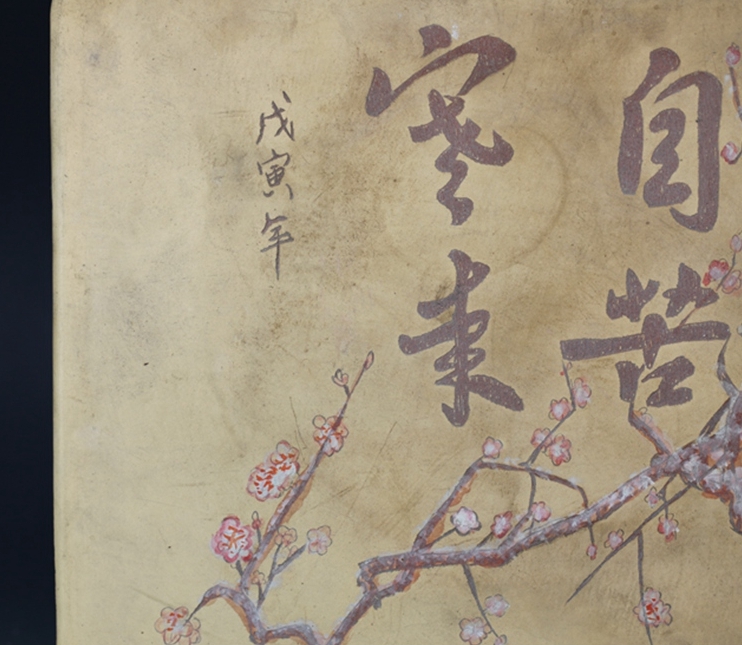 自苦
寒来
戊寅年